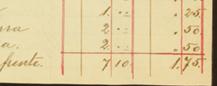 1 .. .25
2 .. .50
a. 2 .. .50
frente. 7 10 1.75